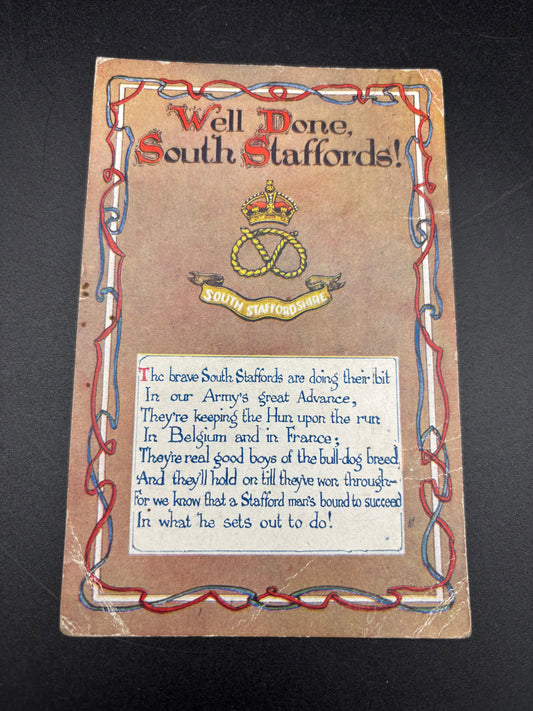 Well Done,
South Staffords!
SOUTH STAFFORDSHIRE
The brave South Staffords are doing their bit
In our Army's great Advance,
They're keeping the Hun upon the run
In Belgium and in France;
They're real good boys of the bull-dog breed
And they'll hold on till they've won through—
For we know that a Stafford man's bound to succeed
In what he sets out to do!